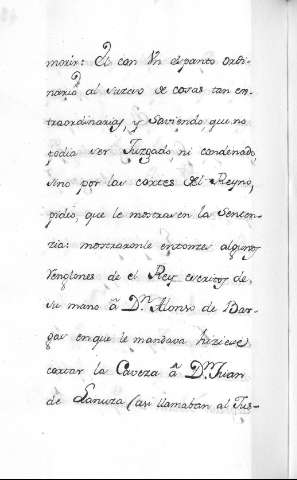 morir: El con Vn espanto ordi-
nario al suzeso de cosas tan ex-
traordinarias, y Saviendo, que no
podia ser Juzgado, ni condenado,
sino por las cortes del Reyno,
pidio, que le mostrasen la Senten-
zia: mostraronle entonzes algunos
Renglones de el Rey escritos de
su mano â Dn. Alonso de Bar-
gas en que le mandava hiziese
cortar la Caveza â Dn. Juan
de Lanuza (asi llamaban al Jus-